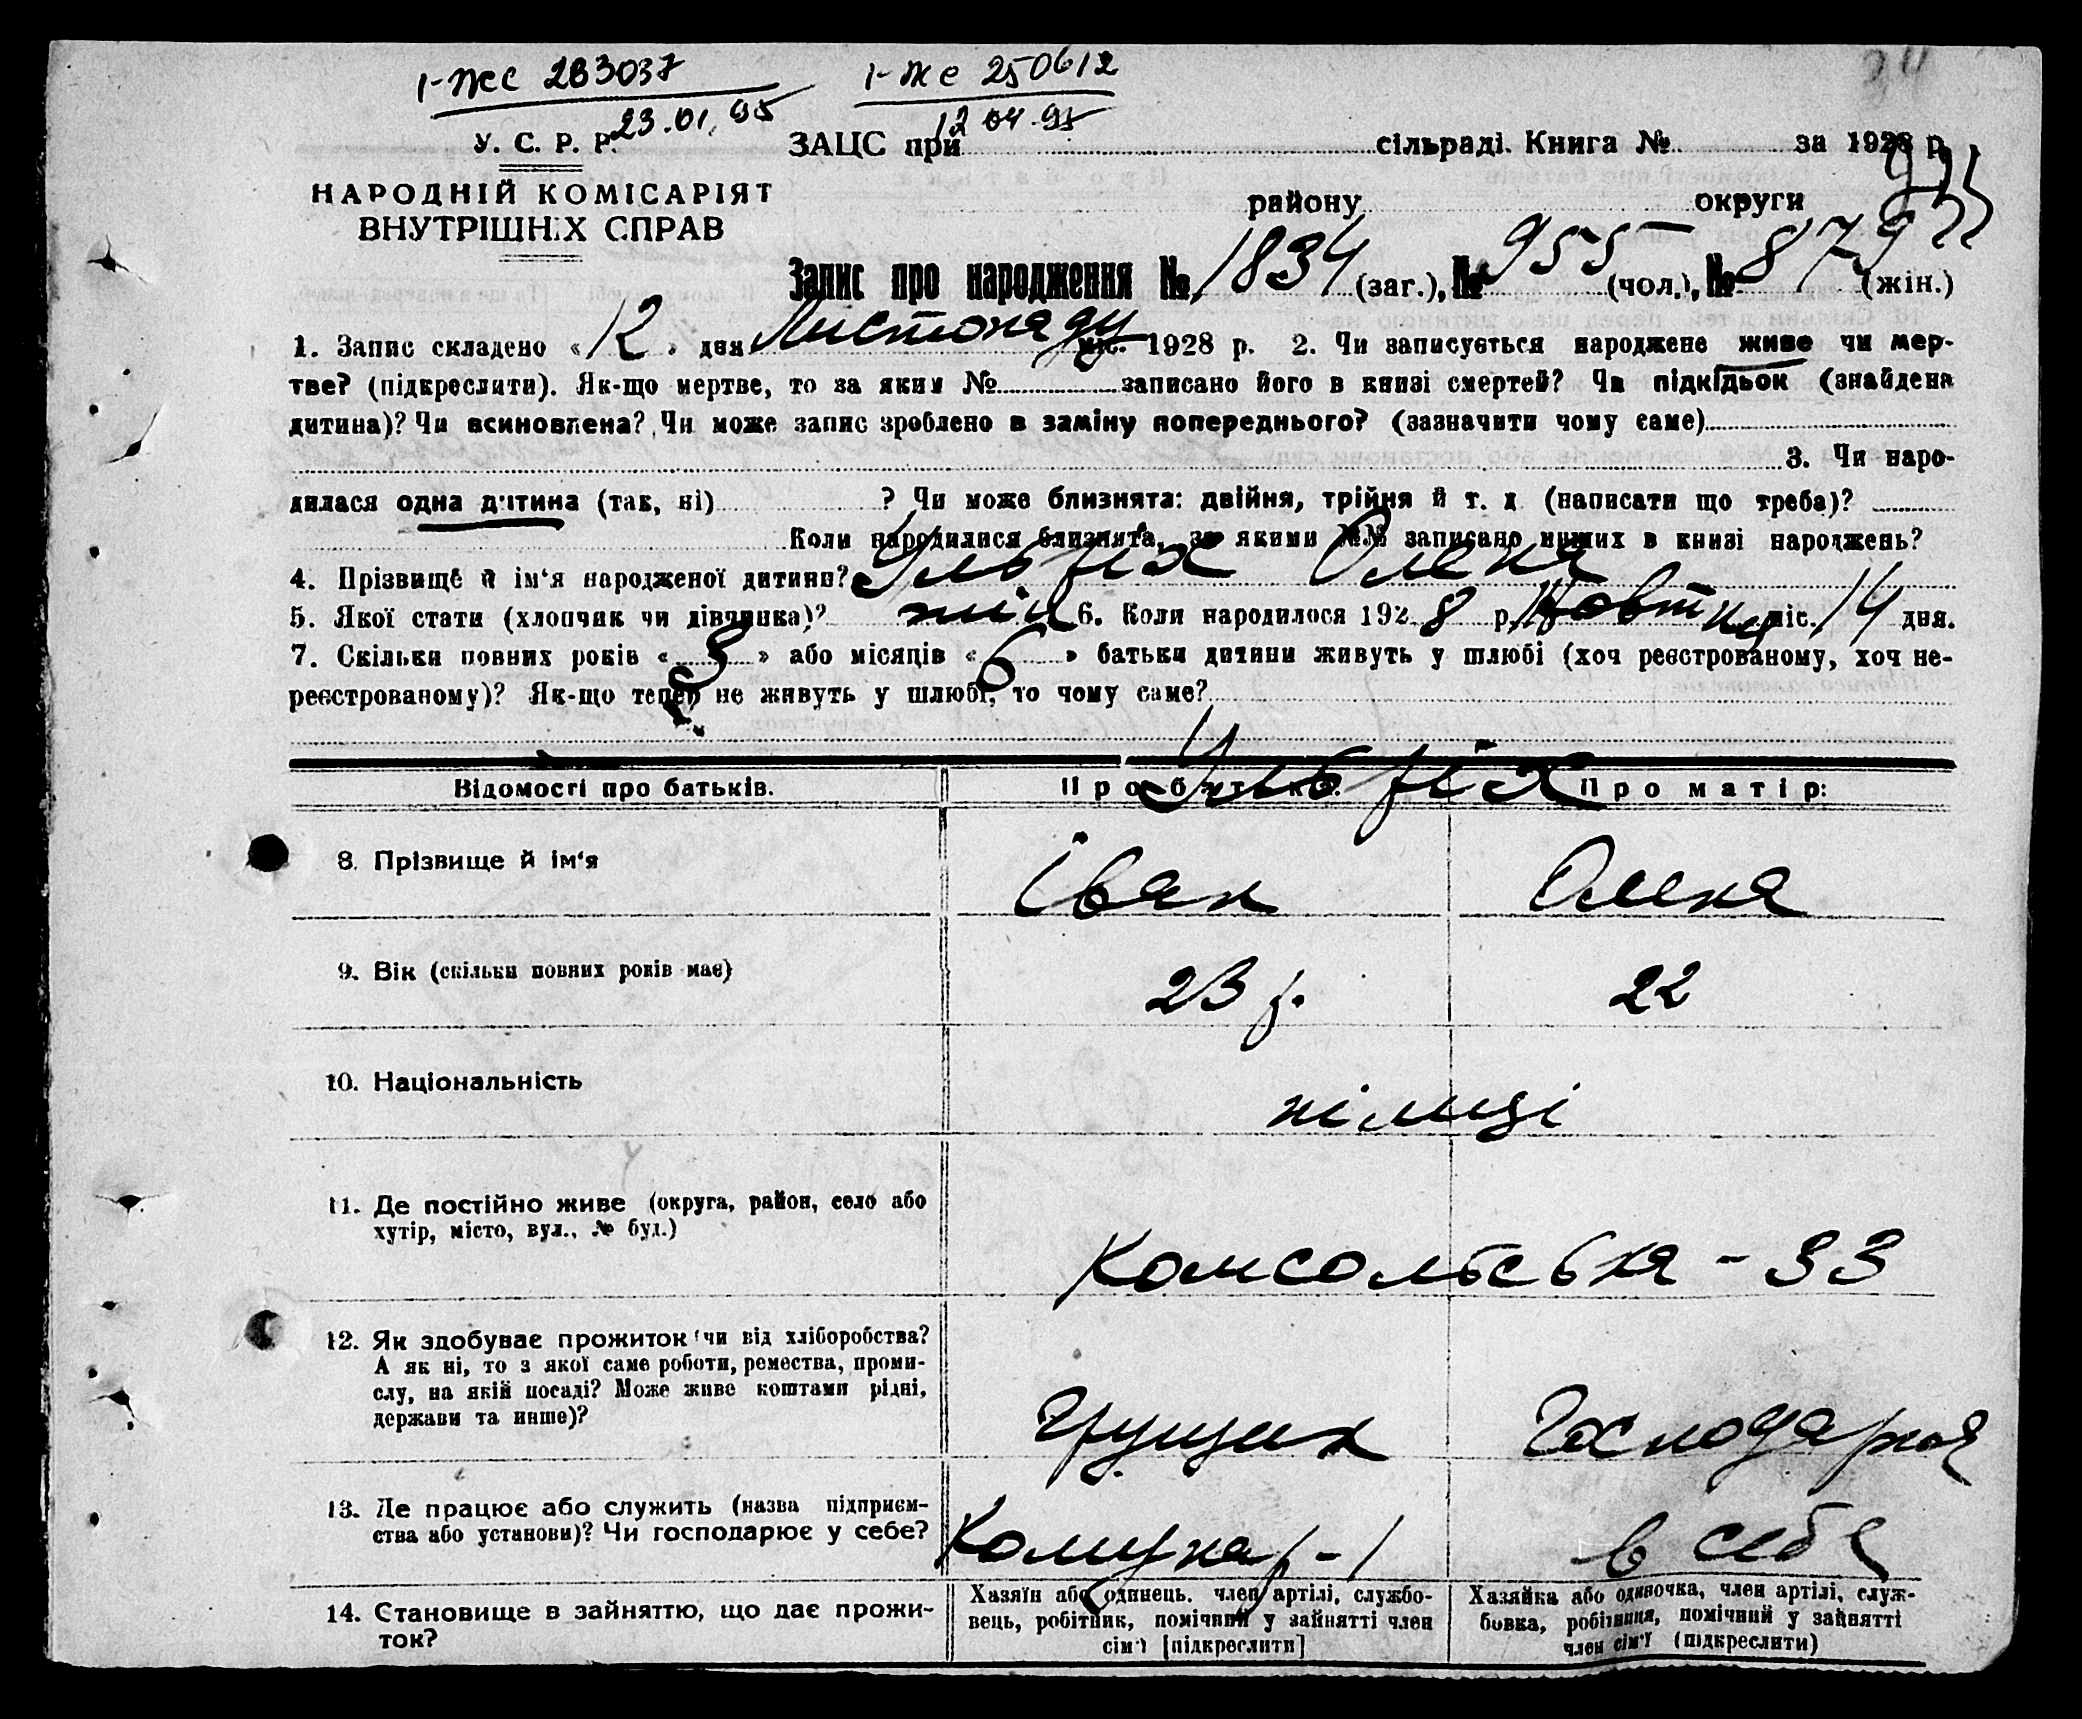 І-ЖС 283037
23.01.95
І-ЖС 250612
12 04.95
У. С. Р. Р.
НАРОДНІЙ КОМІСАРІЯТ
ВНУТРІШНІХ СПРАВ
ЗАЦС при сільраді. Книга № за 1928 р.
району округи
Запис про народження № 1834 (заг.), № 955 (чол.), № 879 (жін.)
1. Запис складено « 12 » дня Листопаду міс. 1928 р. 2. Чи записується народжене живе чи мер-
тве? (підкреслити). Як-що мертве, то за яким № записано його в книзі смертей? Чи підкідьок (знайдена
дитина)? Чи всиновлена? Чи може запис зроблено в заміну попереднього? (зазначити чому саме)
3. Чи наро-
дилася одна дитина (так, ні) ? Чи може близнята: двійня, трійня й т. д (написати що треба)?
Коли народилися близнята, за якими №№ записано инших в книзі народжень?
4. Прізвище й ім‘я народженої дитини? Ульріх Олена
5. Якої стати (хлопчик чи дівчинка)? жін 6. Коли народилося 1928 р. Жовтня міс. 14 дня.
7. Скільки повних років « » або місяців « 6 » батьки дитини живуть у шлюбі (хоч реєстрованому, хоч не-
реєстрованому)? Як-що тепер не живуть у шлюбі, то чому саме?
Відомості про батьків. Про батька: Про матір:
Ульріх
8. Прізвище й ім‘я Іван Олена
9. Вік (скільки повних років має) 23 р. 22
10. Національність німці
11. Де постійно живе (округа, район, село або
хутір, місто, вул., № буд.)
Комсомольська - 33
12. Як здобуває прожиток (чи від хліборобства?
А як ні, то з якої саме роботи, ремества, проми-
слу, на якій посаді? Може живе коштами рідні,
держави та инше)?
Грущик Господарка
13. Де працює або служить (назва підприєм-
ства або установи)? Чи господарює у себе?
в себе
14. Становище в зайняттю, що дає прожи-
ток?
Хазяїн або одинець, член артілі, службо-
вець, робітник, помічний у зайнятті член
сім‘ї [підкреслити]
Хазяйка або одиночка, член артілі, служ-
бовка, робітниця, помічний у зайнятті
член сім‘ї (підкреслити)